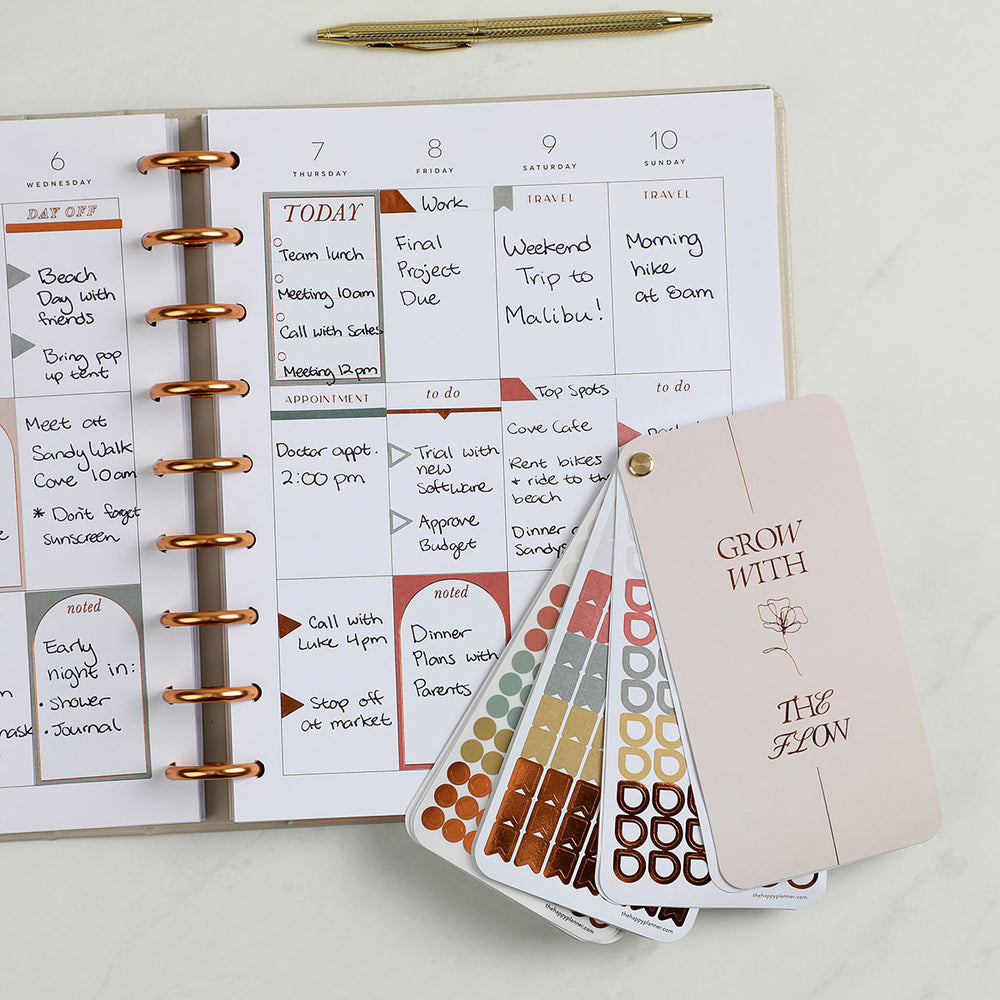 6
WEDNESDAY
DAY OFF
Beach
Day with
friends
Bring pop
up tent
Meet at
Sandy Walk
Cove 10am
* Don't forget
sunscreen
noted
Early
night in:
• shower
• Journal
7
THURSDAY
TODAY
Team lunch
Meeting 10am
Call with Sales
Meeting 12pm
APPOINTMENT
Doctor appt.
2:00 pm
Call with
Luke 4pm
Stop off
at market
8
FRIDAY
Work
Final
Project
Due
to do
Trial with
new
software
Approve
Budget
noted
Dinner
Plans with
Parents
9
SATURDAY
TRAVEL
Weekend
Trip to
Malibu!
Top Spots
Cove Cafe
Rent bikes
+ ride to the
beach
Dinner
Sandys
10
SUNDAY
TRAVEL
Morning
hike
at 8am
to do
GROW
WITH
THE
FLOW
thehappyplanner.com
thehappyplanner.com